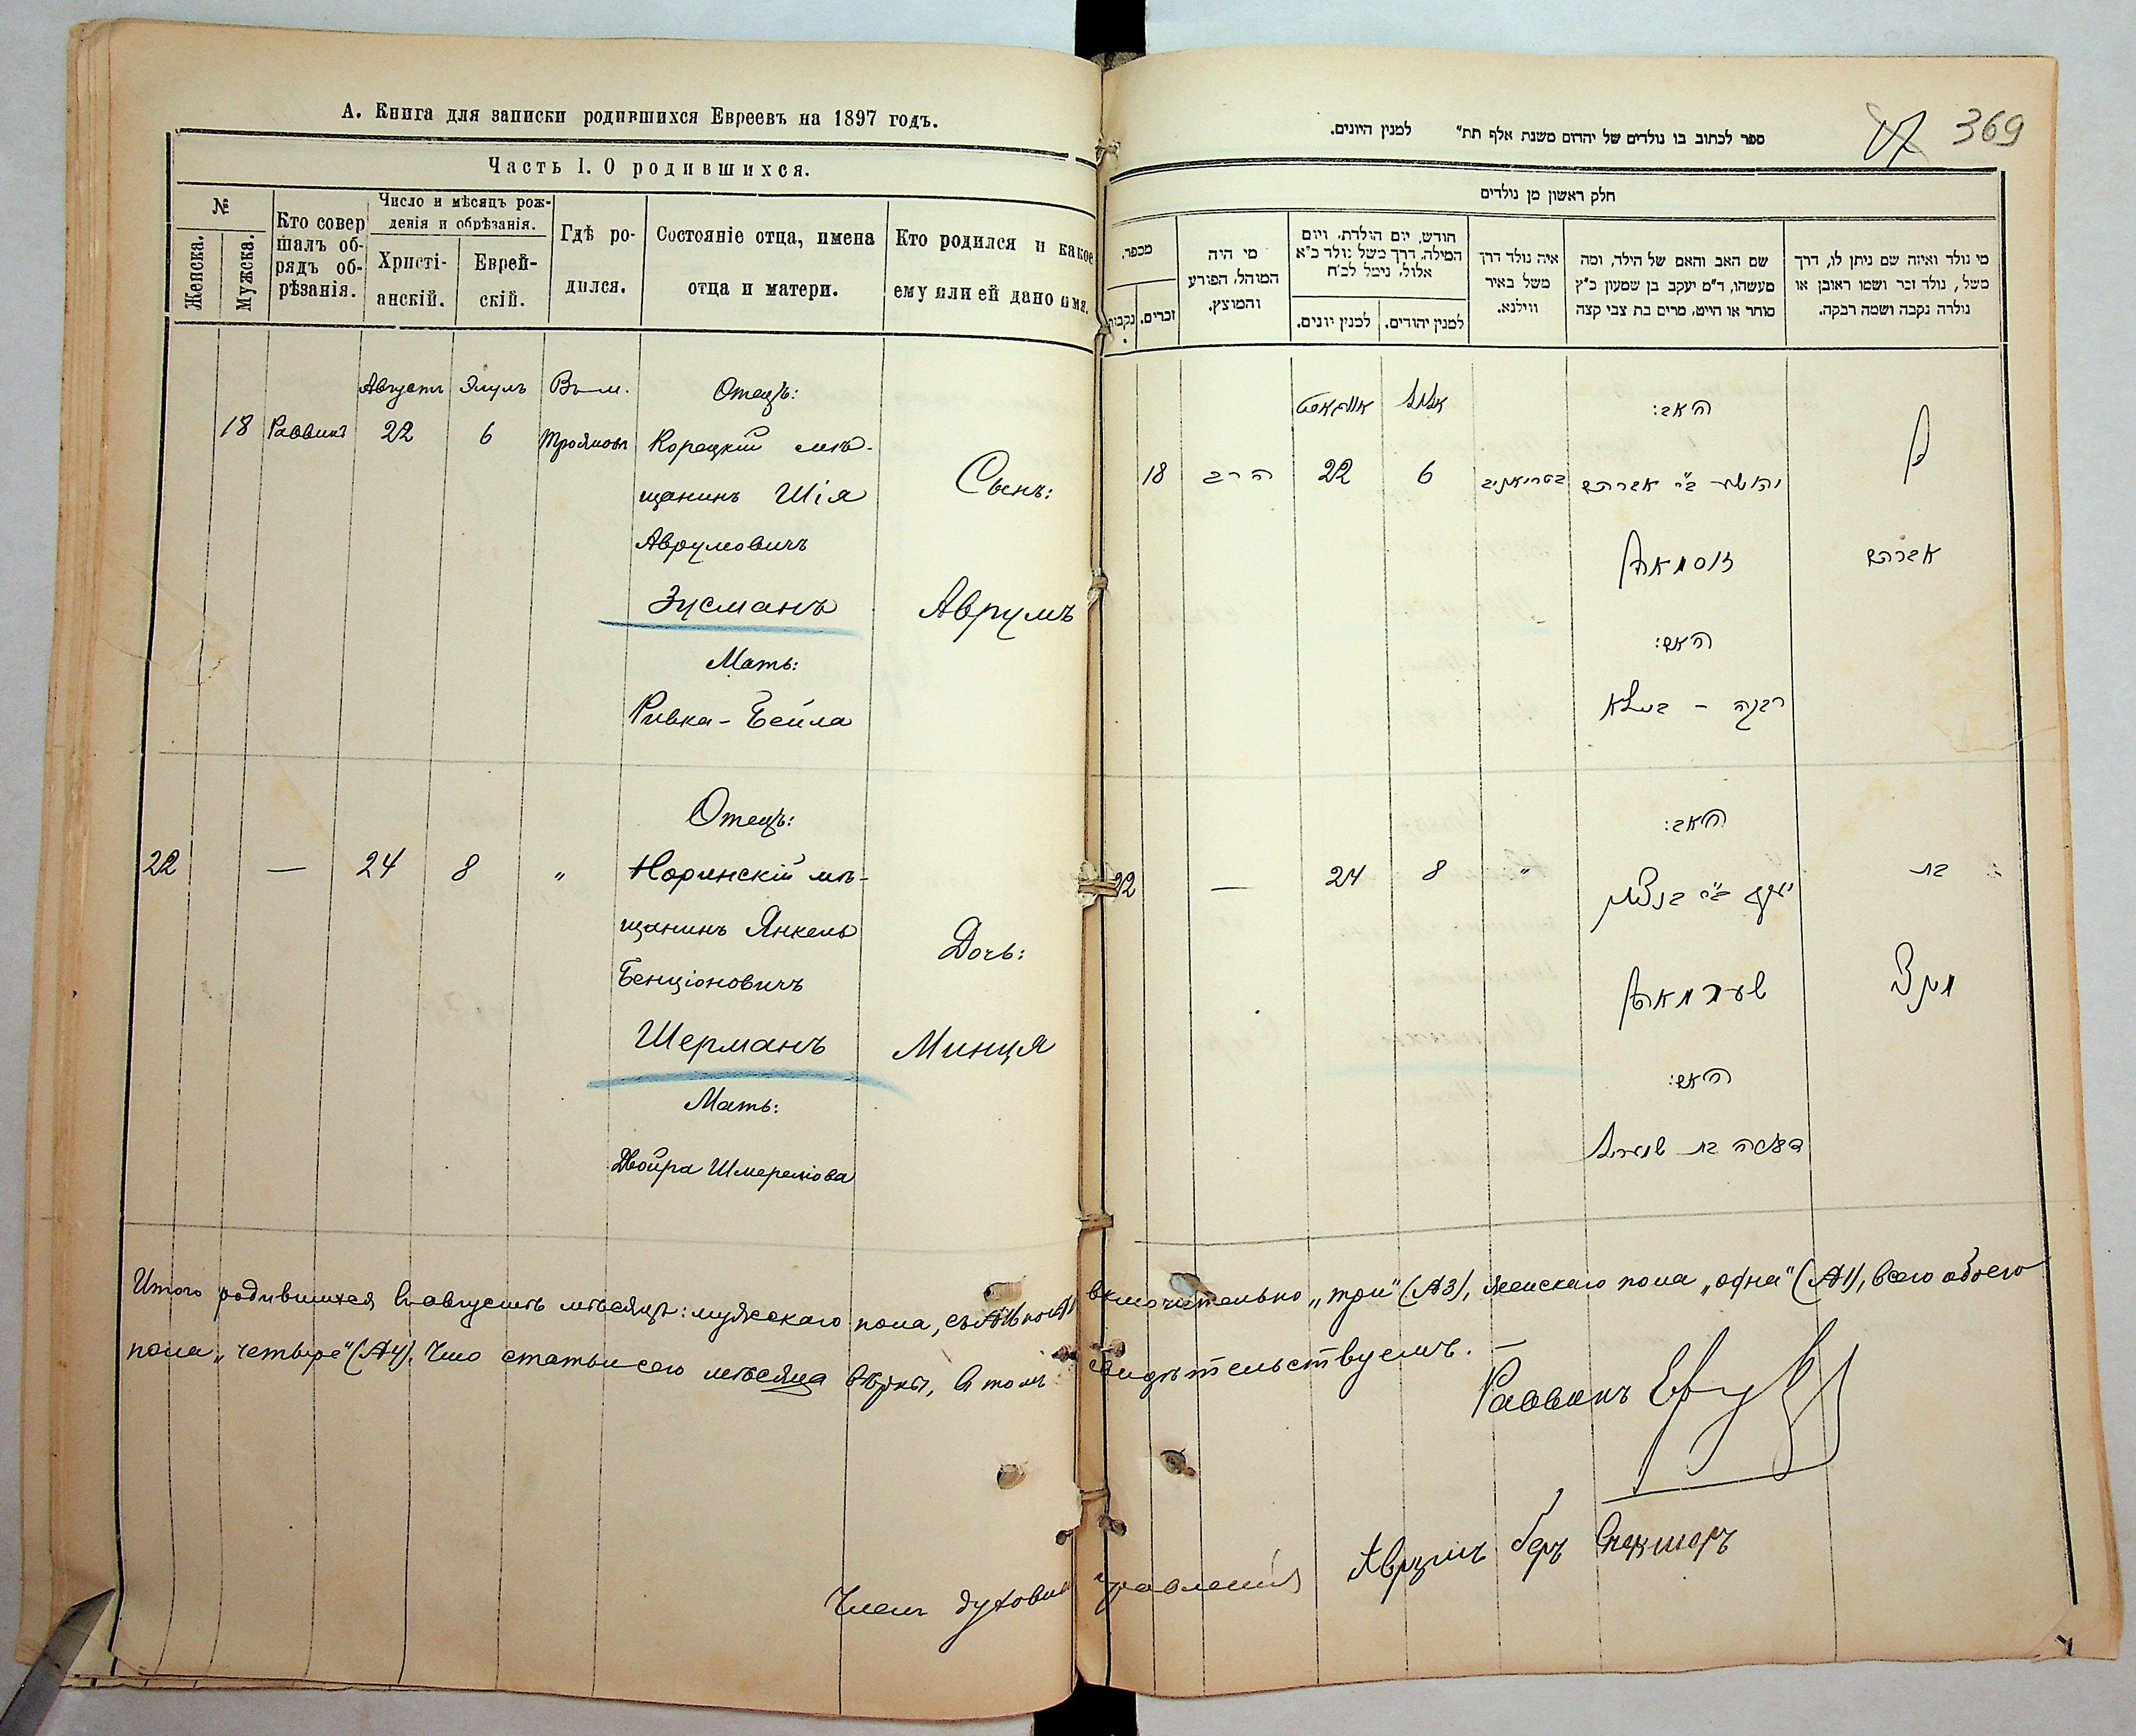 А. Книга для записки родившихся Евреевъ на 1897 годъ.
Часть I. О родившихся.
№
Женска.
Мужска.
Кто совер
шалъ об-
рядъ об-
рѣзанія.
Число и мѣсяцъ рож-
денія и обрѣзанія.
Христі-
анскій.
Еврей-
скій.
Гдѣ ро-
дился.
Состояніе отца, имена
отца и матери.
Кто родился и какое
ему или ей дано имя.
Августъ Элулъ Въ м. Отецъ:
18 Раввинъ 22 6 Трояновѣ Корецкій мѣ-
щанинъ Шія
Сынъ:
Аврумовичъ
Зусманъ
Аврумъ
Мать:
Ривка-Бейла
Отецъ:
22 — 24 8 " Норинскій мѣ-
щанинъ Янкель
Дочь:
Бенціоновичъ
Шерманъ
Минця
Мать:
Двойра Шмерелова
ספר לכתוב בו נולדים של יהדום משנת אלף תת" למנין היונים.
369
חלק ראשון מן נולדים
מספר.
נקבות.
זכרים.
מי היה
המוהל, הפורע
והמוצץ.
חודש, יום הולדת, ויום
המילה. דרך משל נולד כ"א
אלול, נימל לכ"ח
למנין יונים.
למנין יהודים.
איה נולד דרך
משל באיר
ווילנא.
שם האב והאם של הילד, ומה
מעשהו, ד"מ יעקב בן שמעון כ"ץ
סוחר או חייט, מרים בת צבי קצה
מי נולד ואיזה שם ניתן לו, דרך
משל, נולד זכר ושמו ראובן או
נולדה נקבה ושמה רבקה.
אויגאסט אלול האב:
בן
18 הרב 22 6 יהושע ב"ר אברהם
אברהם
זוסמאן
האם:
רבקה - ביילא
האב:
22 — 24 8 " בת
יעקב ב"ר בנציון
מינצי
שערמאן
האם:
דבורה בת שמעריל
Итого родившихся въ августѣ мѣсяцѣ: мужскаго пола, съ включительно „три" (№3), женскаго пола „одна" (№1), всего обоего
пола „четыре" (№4). Что статьи сего мѣсяца вѣрны, въ томъ свидѣтельствуемъ. —
Раввинъ
Членъ духовнаго правленія Аврумъ Беръ